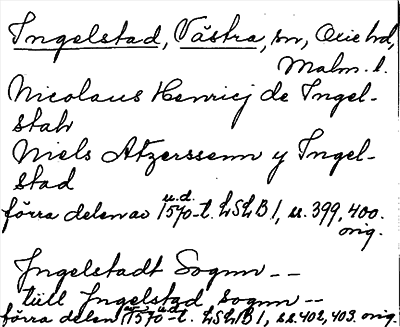 Ingelstad, Västra, sn, Oxie hd,
Malm. l.
Nicolaus Henricj de Ingel-
stadt
Niels Atzerssenn y Ingel-
stad
förra delen av u.d. 1570-t. LSLB 1, s. 399, 400.
orig.
Ingelstadt Sognn --
tiill Ingelstad sognn --
förra delen av u.d. 1570-t. LSLB 1, ss. 402, 403. orig.